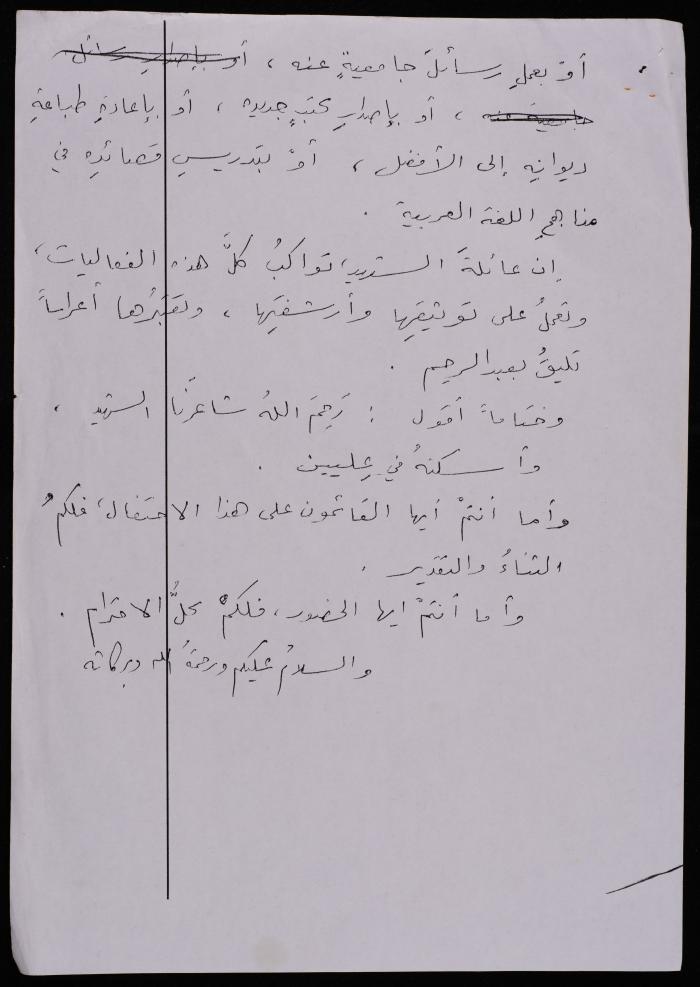 أوْ بعملِ رسائلَ جامعيةٍ عنه ، أو بإصدار رسائل
جامعية عنه ، أو بإصدارِ كتبٍ جديدة ، أو بإعادةِ طباعةِ
ديوانِه إلى الأفضل ، أوْ بتدريسِ قصائدِه في
مناهجِ اللغة العربية .
إن عائلةَ الشهيدِ، تواكبُ كلَّ هذه الفعاليات،
وتعملُ على توثيقِها وأرشفتِها ، وتعتبرُها أعراساً
تليقُ بعبد الرحيم .
وختاماً أقول : رَحِمَ اللهُ شاعرَنا الشهيد ،
وأسكنهُ في عِليين .
وأما أنتمْ أيها القائمون على هذا الاحتفال، فلكمُ
الثناءُ والتقدير .
وأما أنتمْ ايها الحضور، فلكمْ كلُّ الاحترام .
والسلامُ عليكم ورحمةُ الله وبركاته